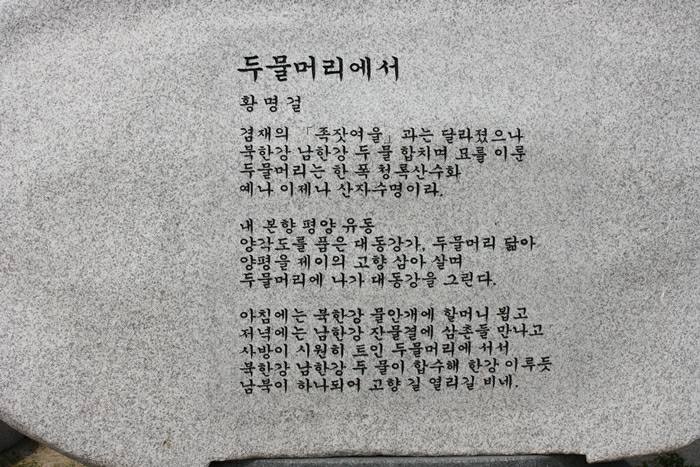 두물머리에서
황명걸
겸재의 「족잣여울」과는 달라졌으나
북한강 남한강 두 물 합치며 묘를 이룬
두물머리는 한 폭 청록산수화
예나 이제나 산자수명이라.
내 본향 평양 유동
양각도를 품은 대동강가, 두물머리 닮아
양평을 제이의 고향 삼아 살며
두물머리에 나가 대동강을 그린다.
아침에는 북한강 물안개에 할머니 뵙고
저녁에는 남한강 잔물결에 삼촌들 만나고
사방이 시원히 트인 두물머리에 서서
북한강 남한강 두 물이 합수해 한강 이루듯
남북이 하나되어 고향 길 열리길 비네.